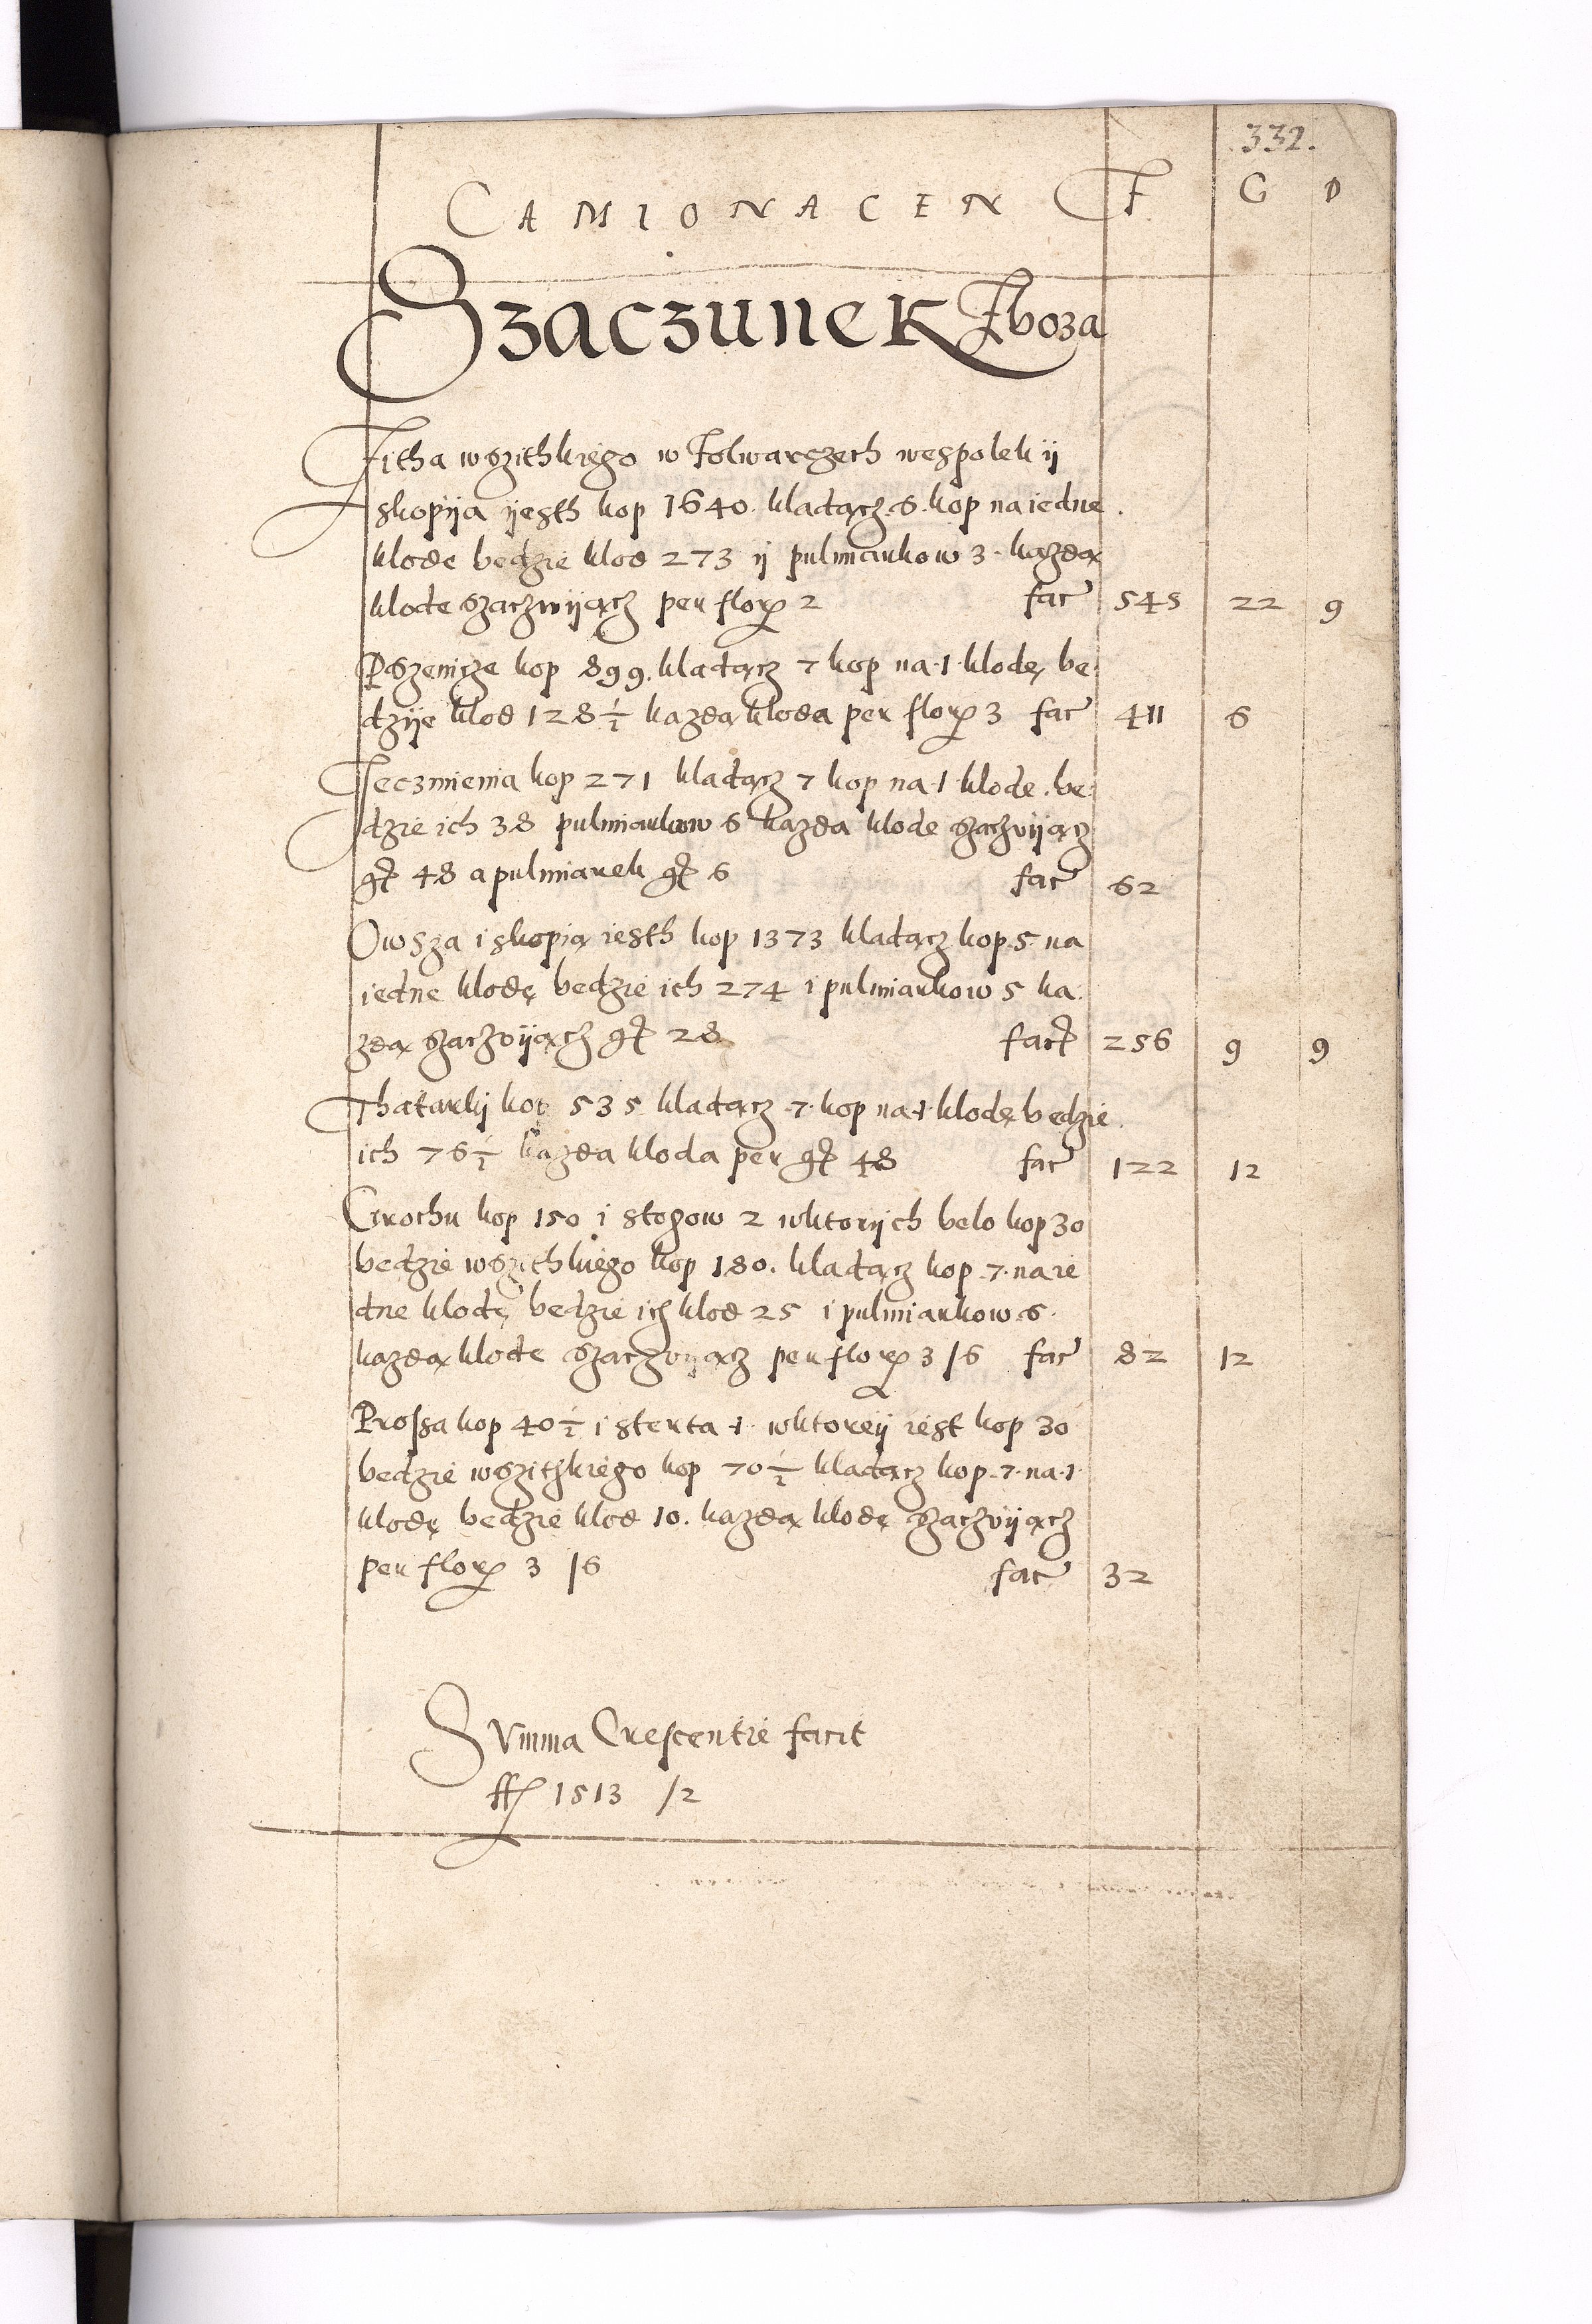 332.
CAMIONACEN F G D
Szaczunek Zboza
Zitha wszithkiego w Folwarczech wespolek ij
skopija ijesth kop 1640. kladącz .6. kop na iedne.
klodę będzie klod 273 ij pulmiarkow 3. kazdą
klode szaczvijącz per flor 2 fac 545 22 9
Pszenicze kop 899. kladącz 7 kop na .1. klodę, bę:
dzije klod 128 1/2 kazdą kloda per flor 3 fac 411 6
Jeczmienia kop 271 kladącz 7 kop na .1. klode. be:
dzie ich 38 pulmiarkow 6 kazda klode szaczvijącz
gt 48 a pulmiarek gt 6 fac 62
Owsza i skopią iesth kop 1373 kladącz kop .5. na
iedne klodę bedzie ich 274 i pulmiarkow 5 ka:
zdą szaczvijącz gt 28 fact 256 9 9
Thatarkij kop 535 kladącz .7. kop na .1. klodę będzie.
ich 76 1/2 kazda kloda per gt 48 fac 122 12
Grochu kop 150 i stogow 2 wktorijch belo kop 30
bedzie wszithkiego kop 180. kladącz kop .7. na ie
dne klodę bedzie ich klod 25 i pulmiarkow .6.
kazdą klode szaczvijącz per flor 3 /6 fac 82 12
Prossa kop 40 1/2 i sterta .1. wktoreij iest kop 30
bedzie wszithkiego kop 70 1/2 kladącz kop .7. na .1.
klodę bedzie klod 10. kazdą klodę szaczvijącz
per flor 3 /6 fac 32
Summa Crescentie facit
ff 1513 /2